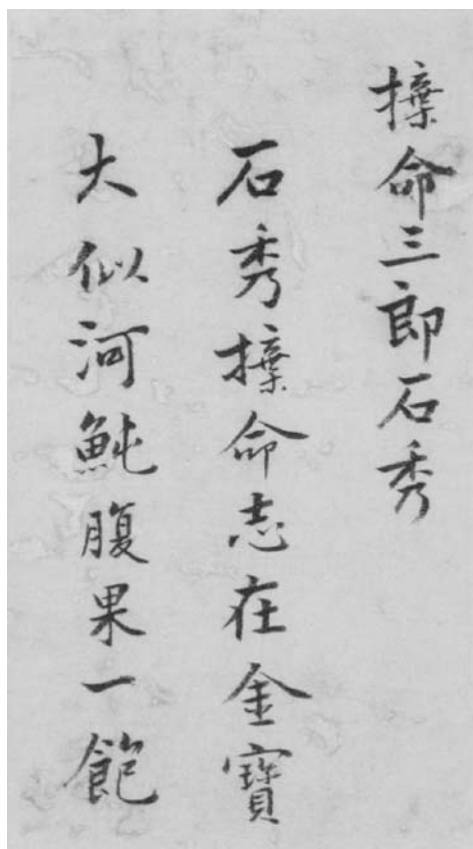 命三郎石秀
石秀命志在金寶
大似河魨腹果一飽